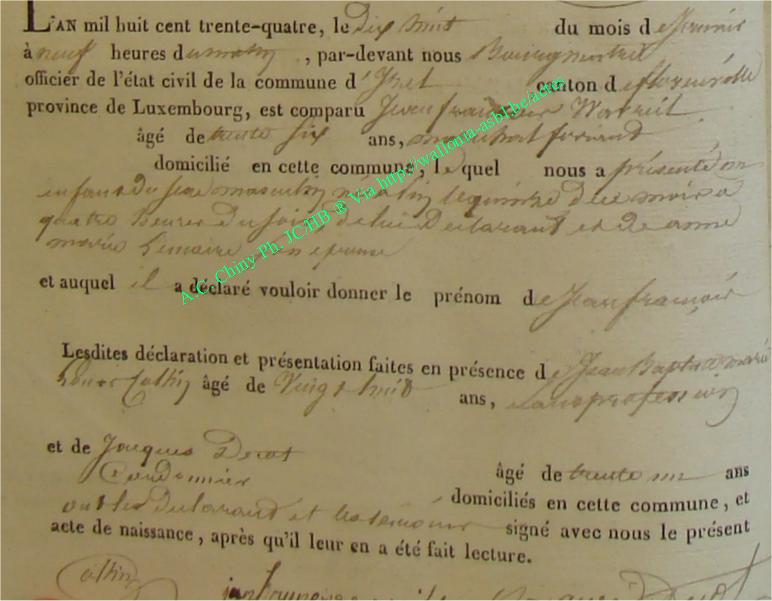 L'AN mil huit cent trente-quatre, le Dix huit du mois de fevrier
à neuf heures du matin, par-devant nous Bourgmestre
officier de l'état civil de la commune d'Izel canton de florenville
province de Luxembourg, est comparu Jean françois Watrin
âgé de trente six ans, marechal ferrant
domicilié en cette commune, lequel nous a présenté un
enfant du sexe masculin né le quinze du ce mois a
quatre heures du soir de lui Declarant et de anne
marie Lemaire son epouse
et auquel il a déclaré vouloir donner le prénom de Jean françois
Lesdites déclaration et présentation faites en présence de Jean Baptiste marie
Louis Collin âgé de Vingt huit ans, sans profession
et de Jacques Derot
Cordonnier âgé de trente un ans
domiciliés en cette commune, et
ont les declarant et les témoins signé avec nous le présent
acte de naissance, après qu'il leur en a été fait lecture.
Collin
A.C. Chiny Ph. JCHB ® Via http://wallonia-asbl.be/actes